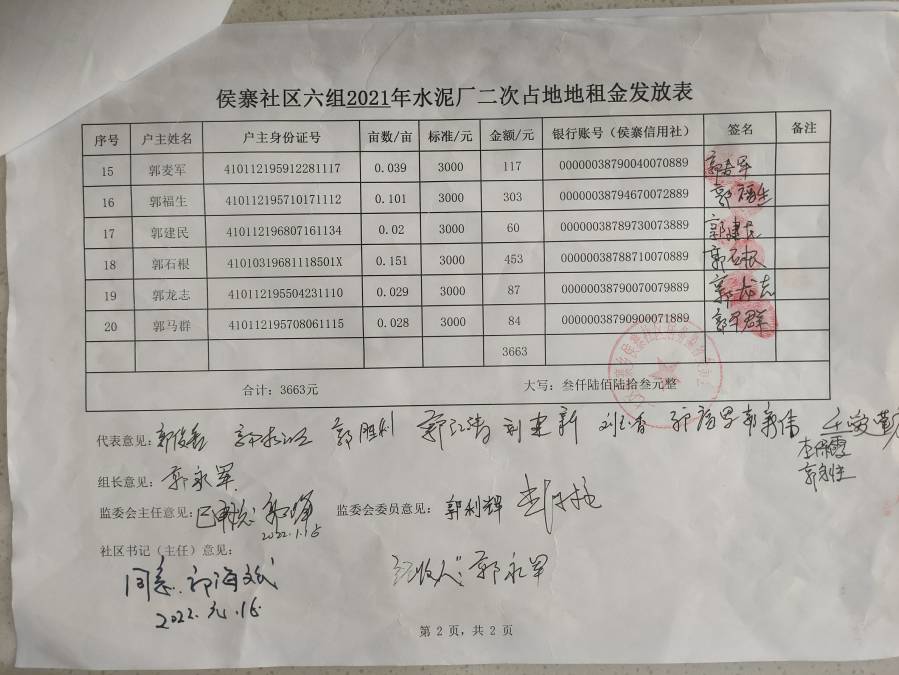 侯寨社区六组2021年水泥厂二次占地地租金发放表
序号 户主姓名 户主身份证号 亩数/亩 标准/元 金额/元 银行账号（侯寨信用社） 签名 备注
15 郭麦军 410112195912281117 0.039 3000 117 00000038790040070889 郭麦军
16 郭福生 410112195710171112 0.101 3000 303 00000038794670072889 郭福生
17 郭建民 410112196807161134 0.02 3000 60 00000038789730073889 郭建民
18 郭石根 41010319681118501X 0.151 3000 453 00000038788710070889 郭石根
19 郭龙志 410112195504231110 0.029 3000 87 00000038790070079889 郭龙志
20 郭马群 410112195708061115 0.028 3000 84 00000038790900071889 郭马群
3663
合计：3663元 大写：叁仟陆佰陆拾叁元整
代表意见： 郭胜利 郭江涛 刘建新
组长意见：郭永军
监委会主任意见： 监委会委员意见：郭利辉
2022.1.16
社区书记（主任）意见：
同意 郭海斌 经收人：郭永军
2022.元.16.
第 2 页，共 2 页